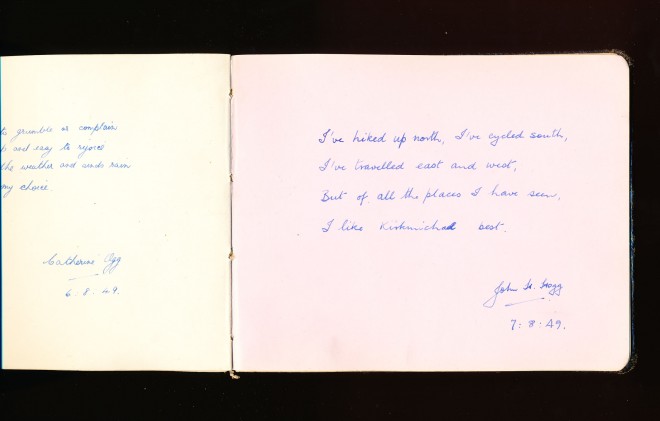 to grumble or complain
and easy to rejoice
the weather and sends rain
my choice.
Catherine Ogg
6.8.49.
I've hiked up north, I've cycled south,
I've travelled east and west,
But of all the places I have seen,
I like Kirkmichael best.
John H. Hogg
7:8:49.